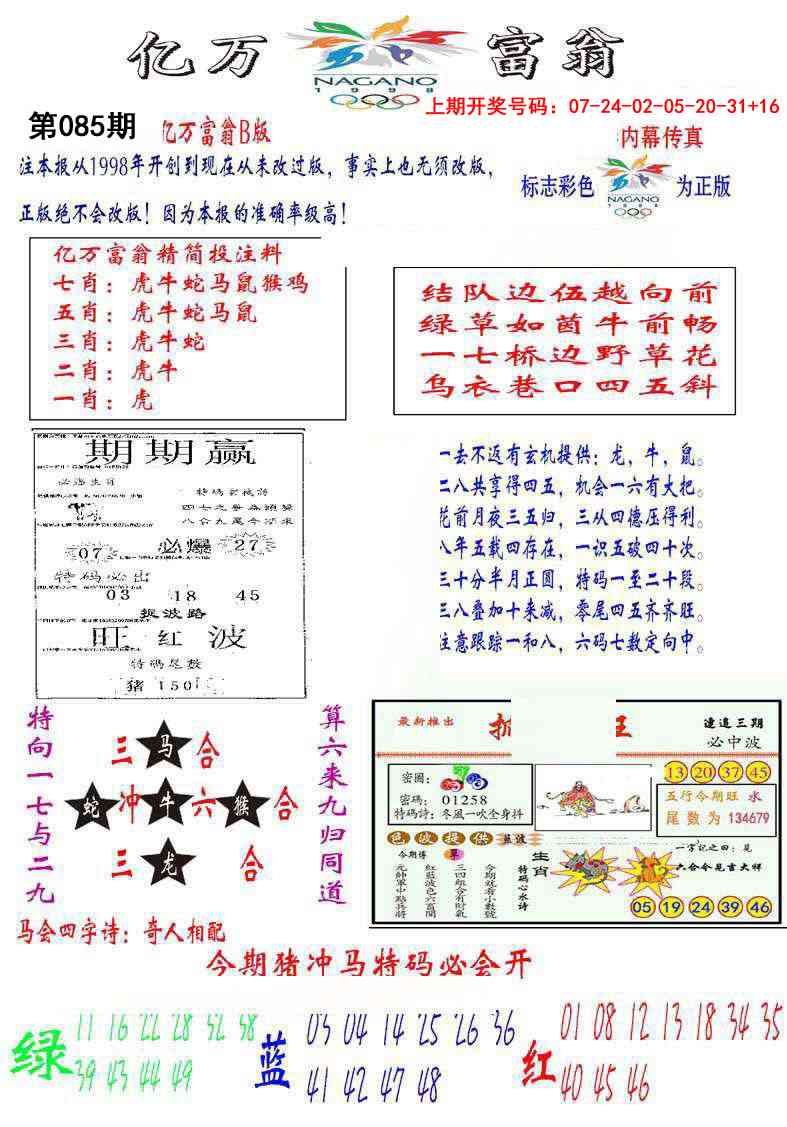 亿万富翁
NAGANO
1998
上期开奖号码：07-24-02-05-20-31+16
第085期
亿万富翁B版
内幕传真
注本报从1998年开创到现在从未改过版，事实上也无须改版，
标志彩色
NAGANO
1998
为正版
正版绝不会改版！因为本报的准确率级高！
亿万富翁精简投注料
七肖：虎牛蛇马鼠猴鸡
五肖：虎牛蛇马鼠
三肖：虎牛蛇
二肖：虎牛
一肖：虎
结队边伍越向前
绿草如茵牛前畅
一七桥边野草花
乌衣巷口四五斜
期期赢
07
必爆
27
特码必出
03 18 45
捉波路
旺红波
特碼尾數
猪 150
一去不返有玄机提供：龙，牛，鼠。
二八共享得四五，机会一六有大把。
花前月夜三五归，三从四德压得利。
八年五载四存在，一识五破四十次。
三十分半月正圆，特码一至二十段。
三八叠加十来减，零尾四五齐齐旺。
注意跟踪一和八，六码七数定向中。
特向一七与二九
三马合
蛇冲牛六猴合
三龙合
算六来九归同道
最新推出
王
連追三期
必中波
密圖：
密碼：01258
特碼詩：冬風一吹全身抖
13 20 37 45
五行今期旺 水
尾数为 134679
色波提供 藍波
今期博
草
今期就看小數號
三四組合有財氣
紅藍波色六畜開
元帥軍中點兵將
特碼心水诗
生肖
一字記之曰：見
六合今見吉大祥
05 19 24 39 46
马会四字诗：奇人相配
今期猪冲马特码必会开
绿
11 16 22 28 32 38
39 43 44 49
蓝
03 04 14 25 26 36
41 42 47 48
红
01 08 12 13 18 34 35
40 45 46